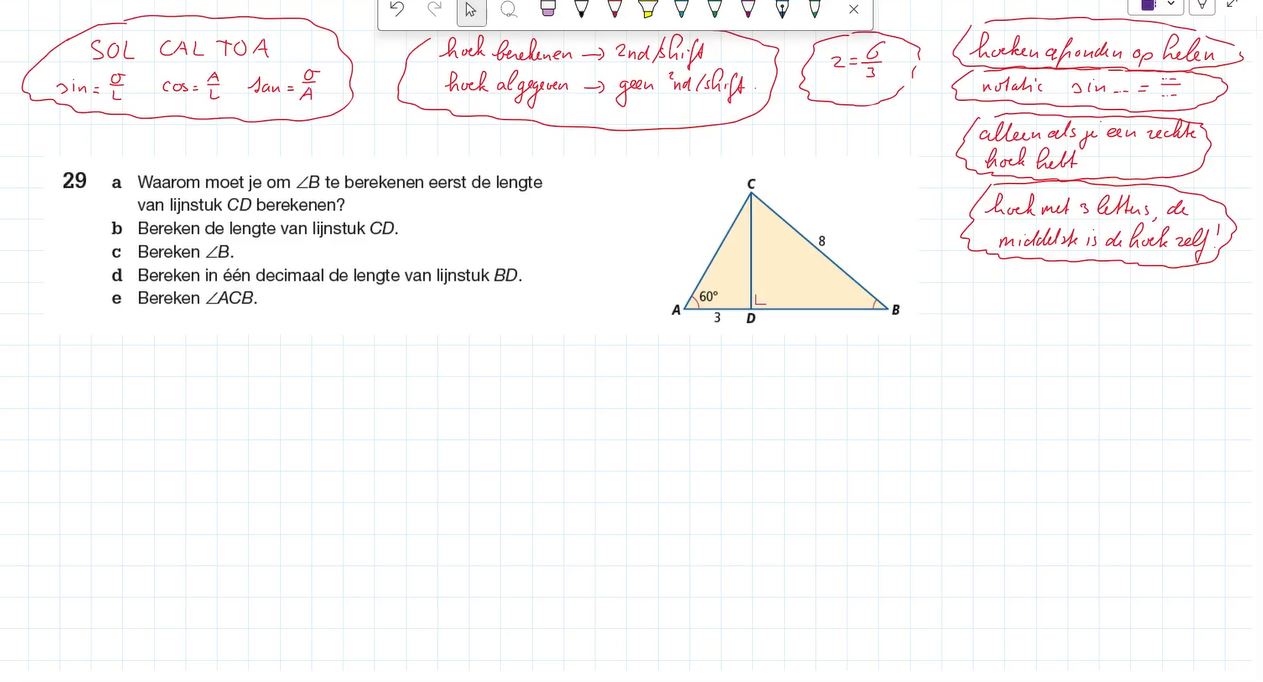 SOL CAL TOA
sin = O/L cos = A/L tan = O/A
hoek berekenen → 2nd/shift
hoek al gegeven → geen 2nd/shift.
2 = 6/3
hoeken afronden op helen
notatie sin ... = .../...
alleen als je een rechte
hoek hebt
hoek met 3 letters, de
middelste is de hoek zelf!
29 a Waarom moet je om ∠B te berekenen eerst de lengte
van lijnstuk CD berekenen?
b Bereken de lengte van lijnstuk CD.
c Bereken ∠B.
d Bereken in één decimaal de lengte van lijnstuk BD.
e Bereken ∠ACB.
C
8
60°
A
3
D
B